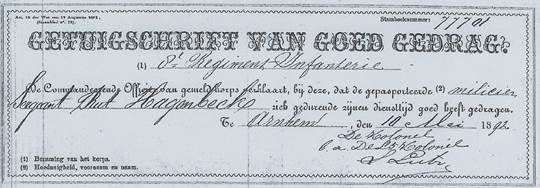 Art. 10 der Wet van 19 Augustus 1861,
(Staatsblad nº. 72).
Stamboeknummer: 77701
GETUIGSCHRIFT VAN GOED GEDRAG.
(1) 8e Regiment Infanterie
De Commandeerende Officier van gemeld korps verklaart, bij deze, dat de gepasporteerde (2) milicien
Sergeant Hagenbeek zich gedurende zijnen diensttijd goed heeft gedragen.
Te Arnhem, den 10 Mei 1892
De Kolonel
b. a. De Lt. Kolonel
(1) Benaming van het korps.
(2) Hoedanigheid, voornaam en naam.